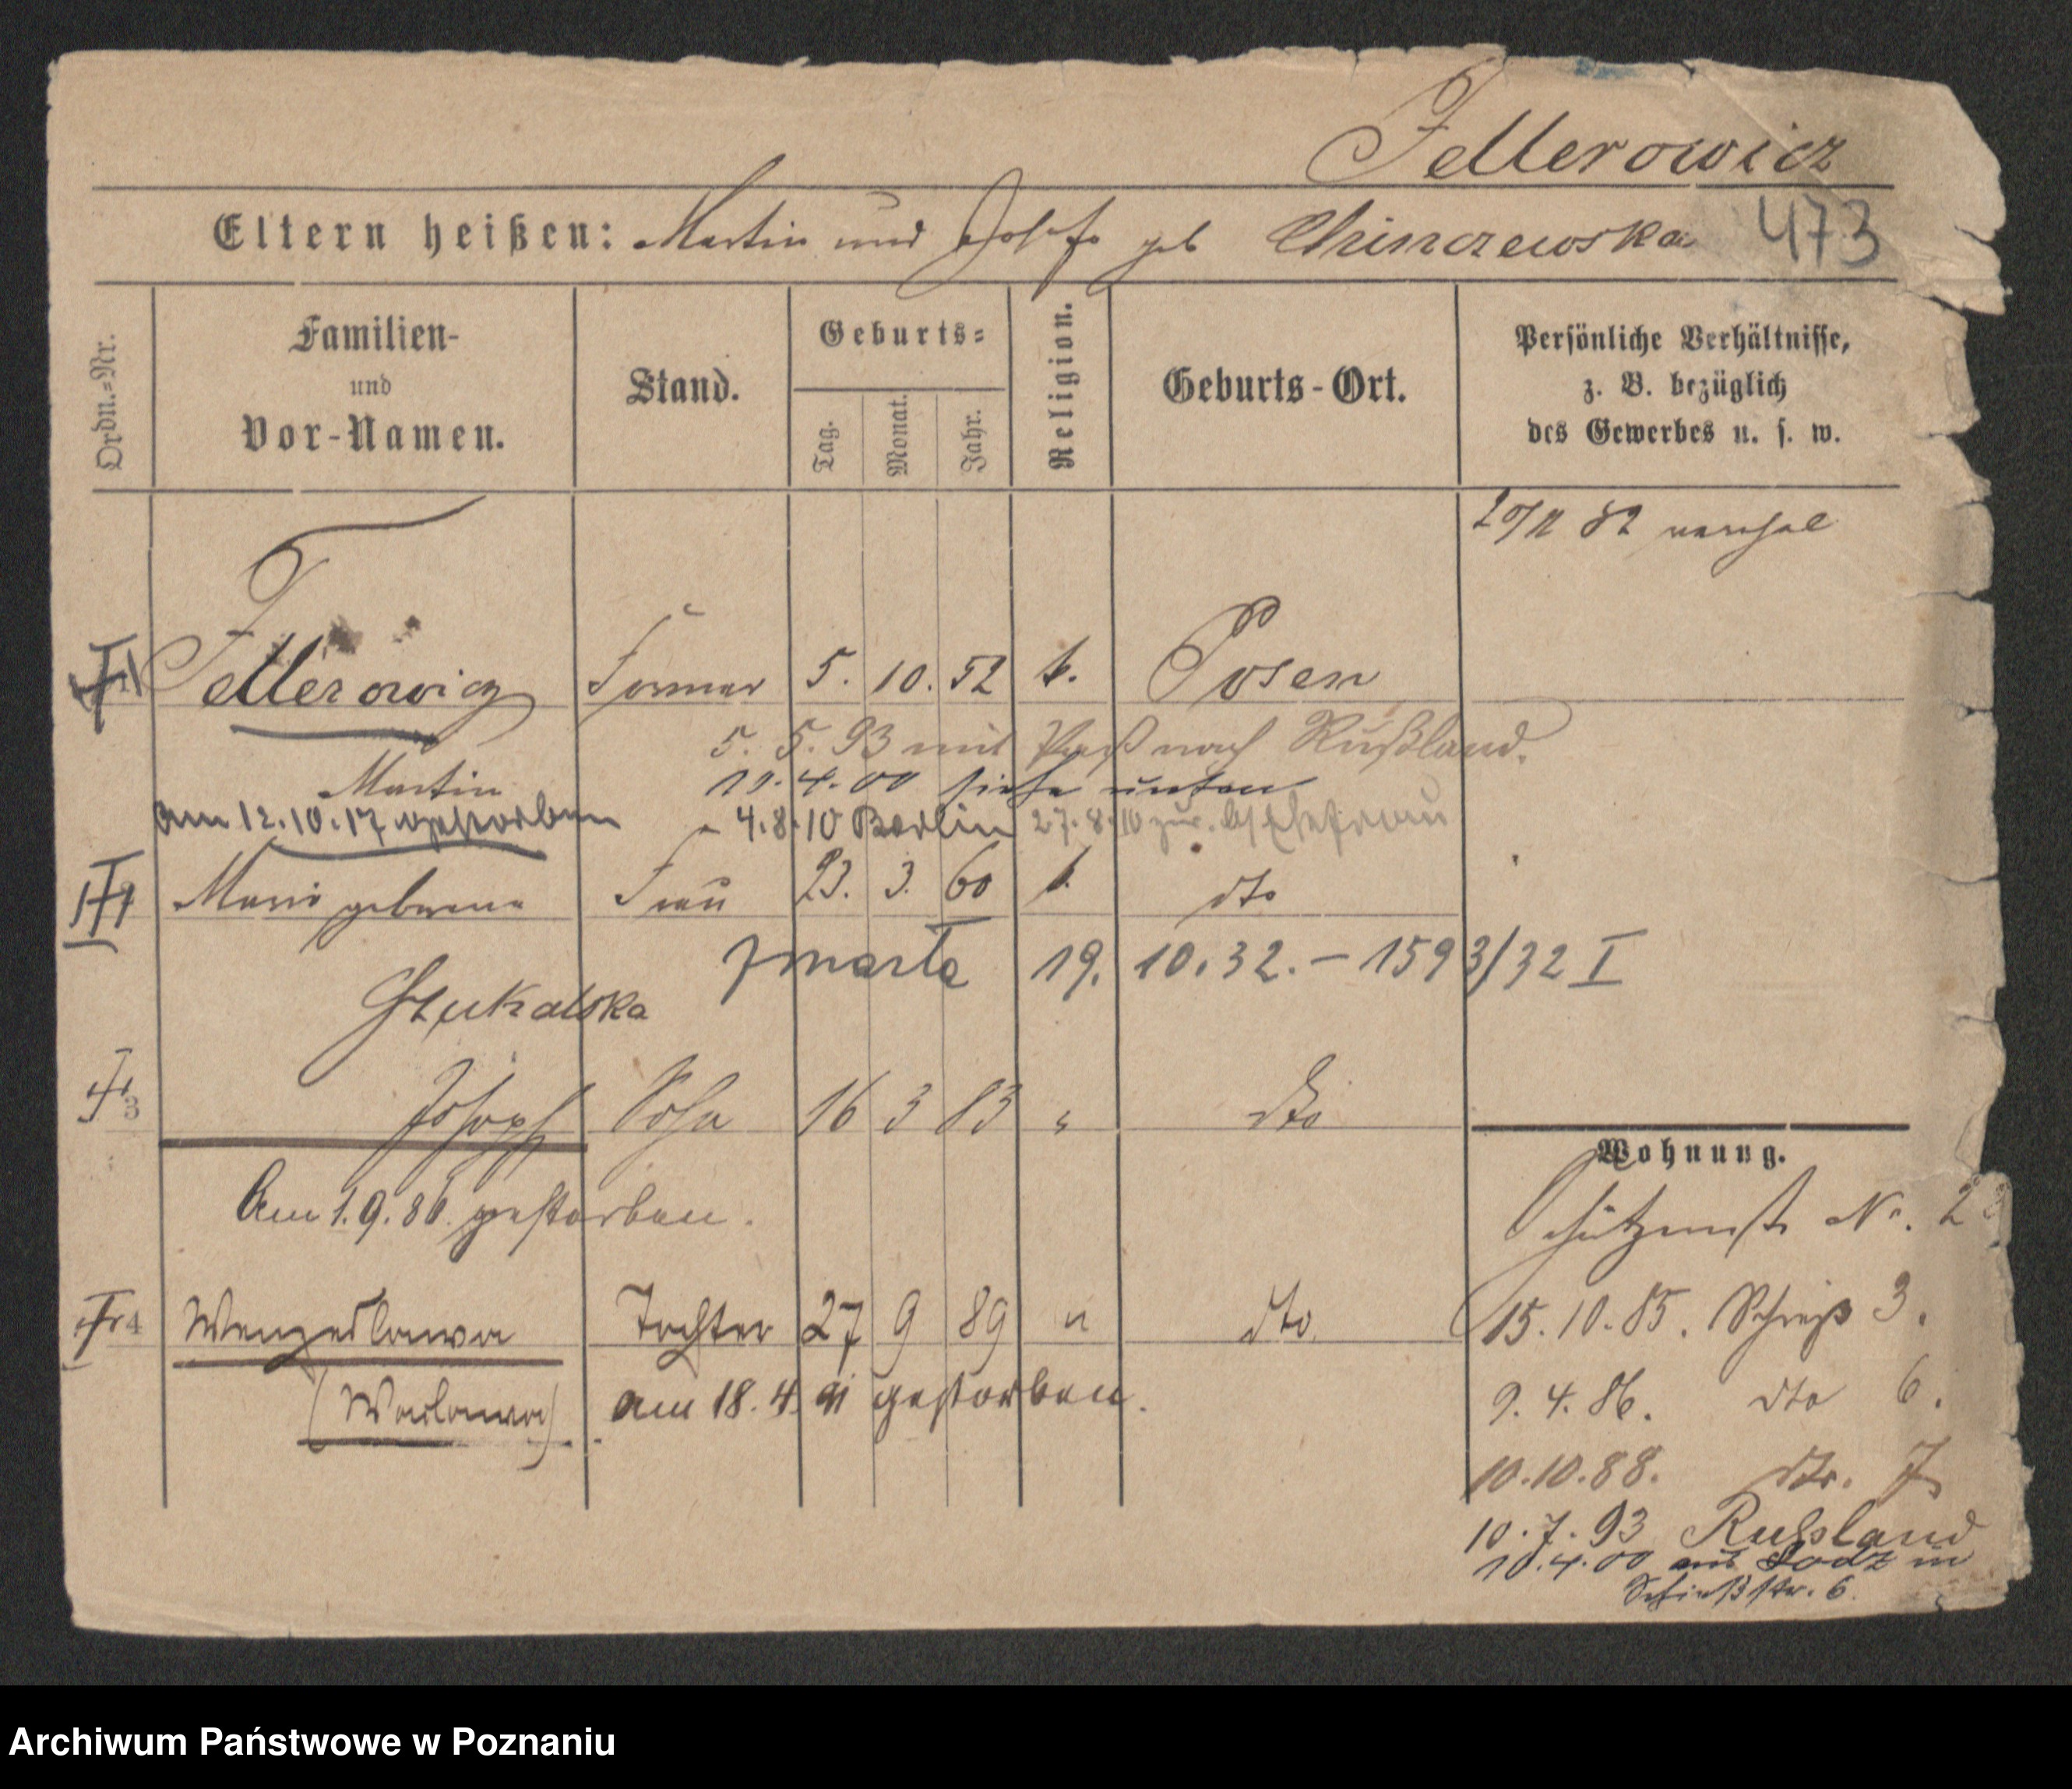 Fellerowicz
Eltern heißen: Martin und geb Chimczewska 473
Ordn.-Nr.
Familien-
und
Vor-Namen.
Stand.
Geburts-
Tag.
Monat.
Jahr.
Religion.
Geburts-Ort.
Persönliche Verhältnisse,
z. B. bezüglich
des Gewerbes u. s. w.
82
Fellerowicz Former 5. 10. 52 k. Posen
5. 5. 93 mit Paß nach Rußland.
Martin
4. 00 siehe unten
am 12.10.17 gestorben
4.8.10 Berlin 27.8.10 zur. Ehefrau
geborene Frau 23. 3. 60 k. dto
zmarła 19. 10. 32. – 1593/32 I
Joseph Sohn 16 3 83 " dto
Am 1.9.86. gestorben.
Wohnung.
Schützenstr No. 2
4 Wenzeslawa Tochter 27 9 89 " dto.
15. 10. 85. 3.
(Waclawa) am 18. 4. 91 gestorben.
9. 4. 86. dto 6.
10. 10. 88. dto. 7
10. 7. 93 Russland
10. 4. 00 aus Lodz in
Schießstr. 6.
Archiwum Państwowe w Poznaniu